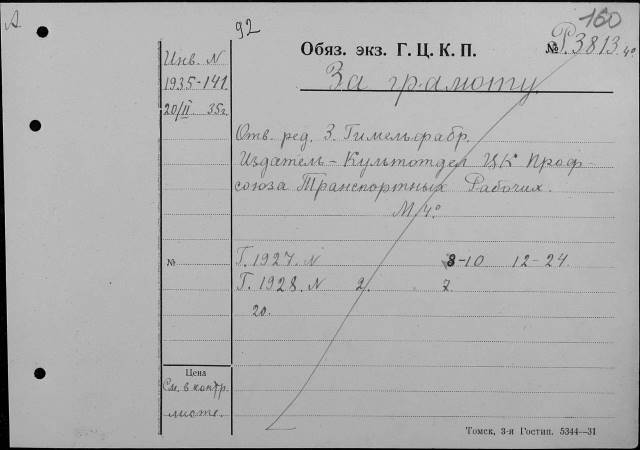 А
92
160
Обяз. экз. Г. Ц. К. П.
№ Р.3813 4°
За грамоту.
Инв. N
1935-141
20/II 35г.
Отв. ред. З. Гимельфарб.
Издатель – Культотдел ЦК Проф-
союза Транспортных Рабочих.
М. 4°
№
Г. 1927. N 8-10 12-24.
Г. 1928. N 2. 7.
20.
Цена
См. в контр.
листе.
Томск, 3-я Гостип. 5344—31